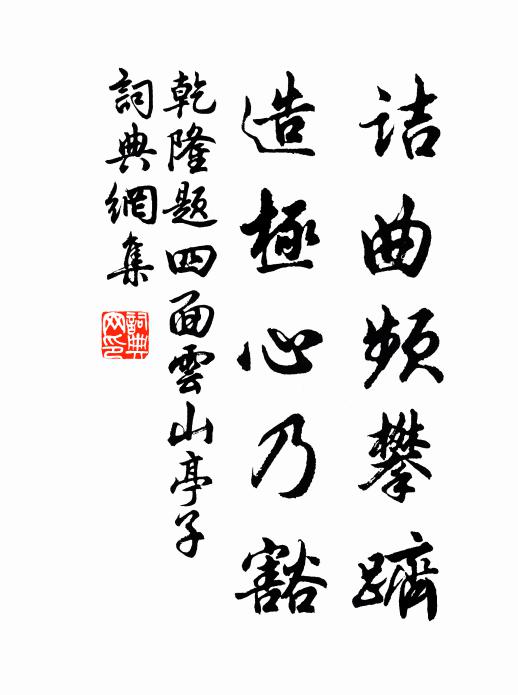 詰曲頻攀躋
造極心乃豁
乾隆題四面雲山亭子
詞典網集
詞典
网印